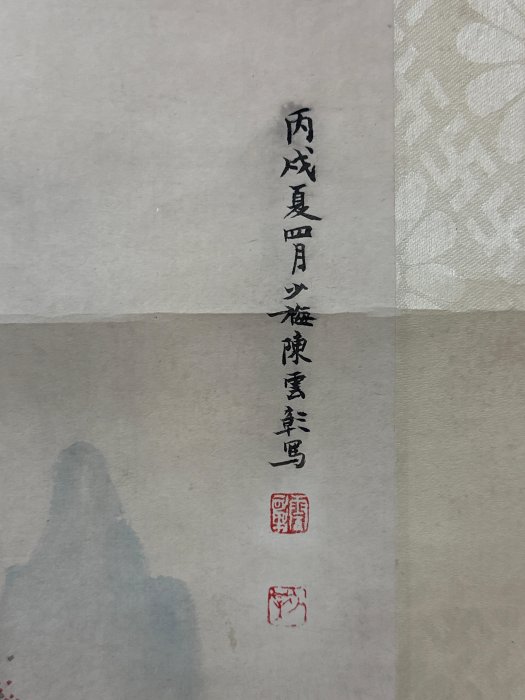 丙戌夏四月少梅陳雲彰写